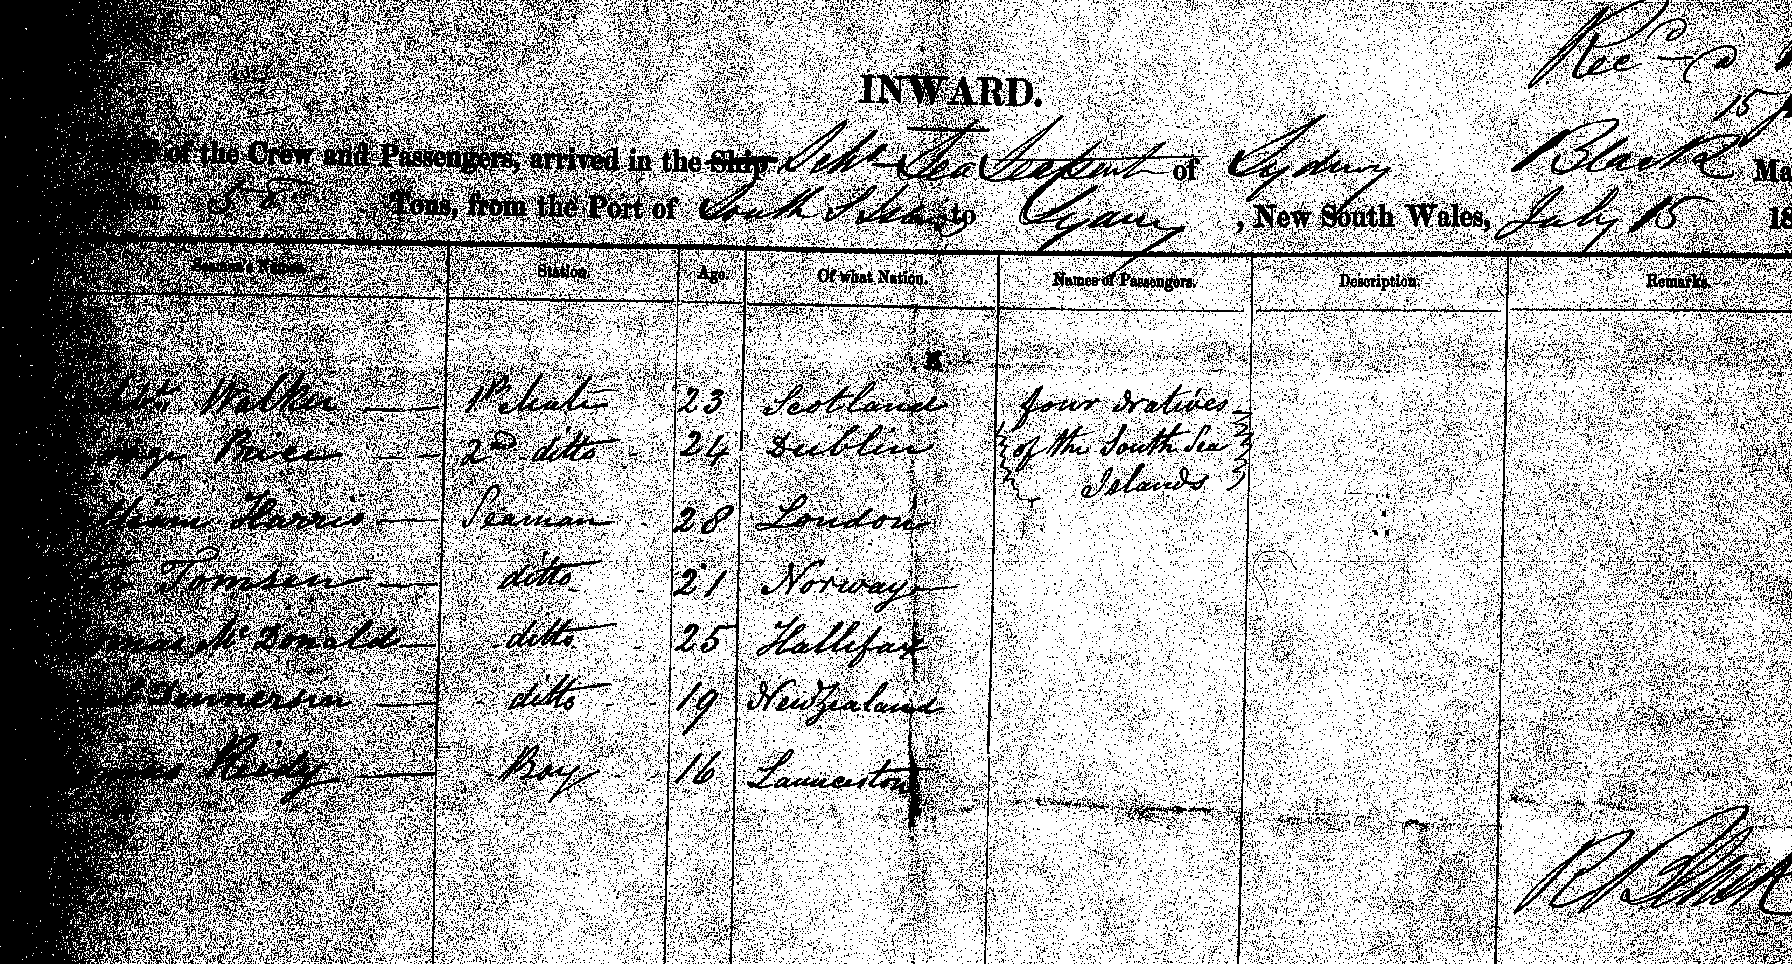 Rec
15
INWARD.
of the Crew and Passengers, arrived in the Ship Schr Sea Serpent of Sydney Black Ma
Tons, from the Port of South Sea to Sydney, New South Wales, July 15 18
Seamen's Names. Station. Age. Of what Nation. Names of Passengers. Description. Remarks.
Walker 1st Mate 23 Scotland four Natives
Price 2nd ditto 24 Dublin of the South Sea
Islands
Harris Seaman 28 London
Tomsen ditto 21 Norway
McDonald ditto 25 Hallifax
ditto 19 New Zealand
Boy 16 Launceston
R Black